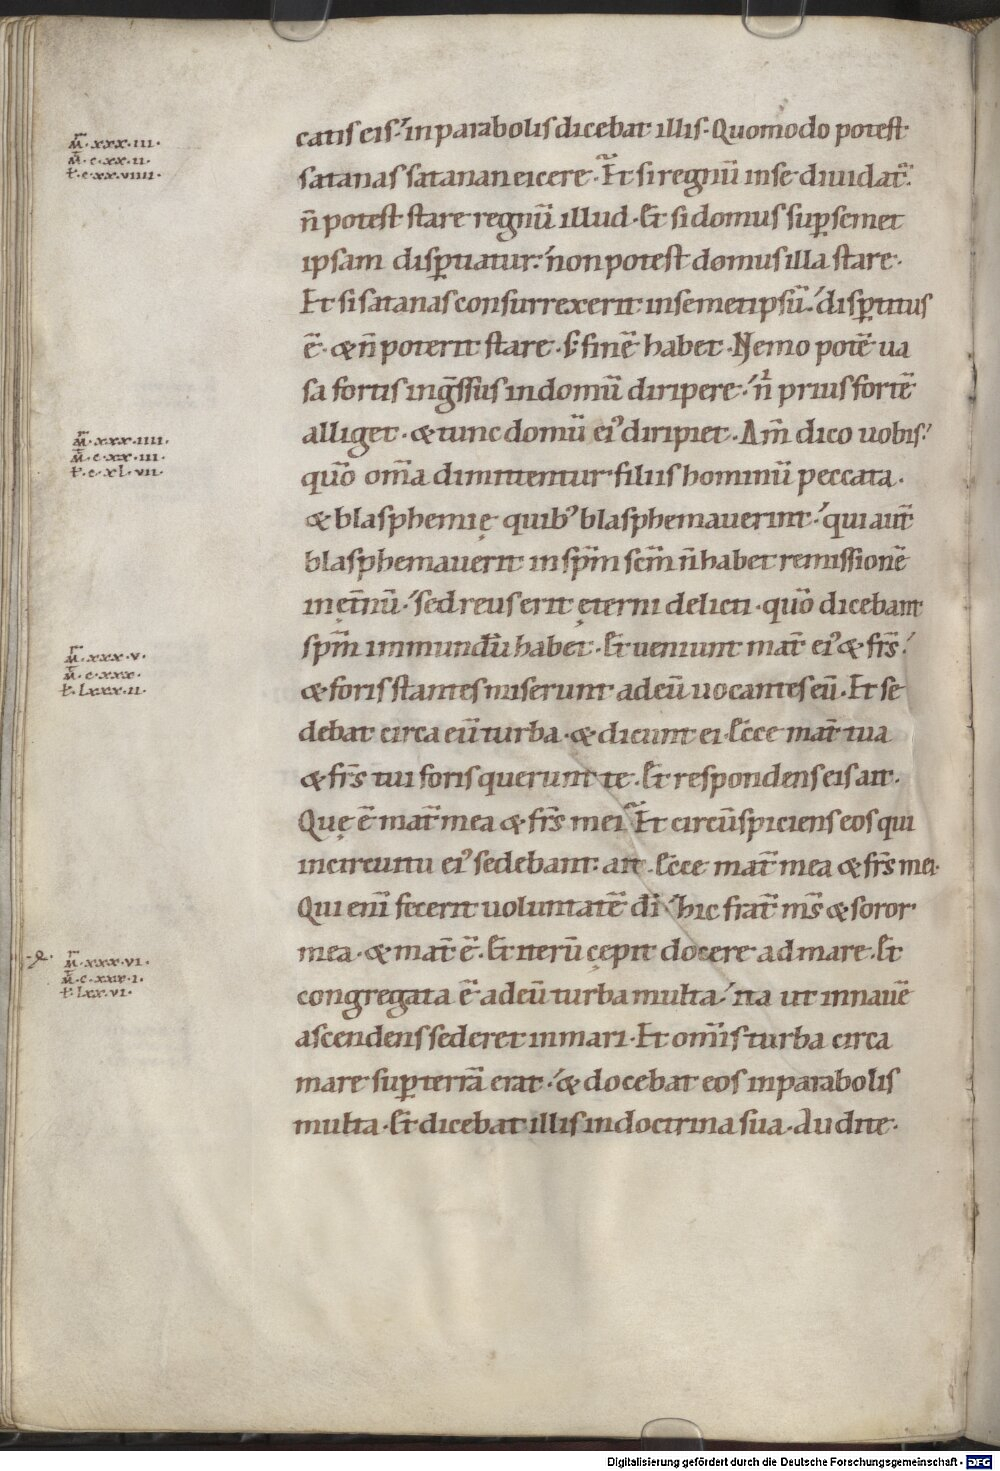 m̅r·xxx·iii·
m̅·c·xx·ii·
ł·c·xx·viiii·
catis eis· in parabolis dicebat illis· Quomodo potest
satanas satanan eicere· Et si regnū in se diuidat᷑·
n̄ potest stare regnū illud· Et si domus suꝑ semet
ipsam disꝑtiatur· non potest domus illa stare·
Et si satanas consurrexerit in semetipsū· disꝑtitus
ē· & n̄ poterit stare· s; finē habet· Nemo potē ua
sa fortis ingr̄ssus in domū diripere· n̄ prius fortē
m̅r·xxx·iiii·
m̅·c·xx·iii·
ł·c·xl·vii·
alliget· & tunc domū ei᾽ diripiet· Am̄ dico uobis·
quō om̄a dimittentur filiis hominū peccata·
& blasphemię quib᾽ blasphemauerint· qui aut̄
blasphemauerit in sp̄m sc̄m n̄ habet remissionē
in ęt̄nū· sed reus erit ęterni delicti· quō dicebant
m̅r·xxx·v·
m̅·c·xxx·
ł·lxxx·ii·
sp̄m immundū habet· Et ueniunt mat̄ ei᾽ & fr̄s·
& foris stantes miserunt ad eū uocantes eū· Et se
debat circa eū turba· & dicunt ei· Ecce mat̄ tua
& fr̄s tui foris querunt te· Et respondens eis ait·
Quę ē mat̄ mea & fr̄s mei· Et circūspiciens eos qui
in circuitu ei᾽ sedebant· ait· Ecce mat̄ mea & fr̄s mei·
Qui eni̅ fecerit uoluntatē di̅· hic frat̄ m̄s & soror
m̅r·xxx·vi·
m̅·c·xxx·i·
ł·lxx·vi·
mea· & mat̄ ē· Et iterū cępit docere ad mare· Et
congregata ē ad eū turba multa· ita ut in nauē
ascendens sederet in mari· Et om̄is turba circa
mare suꝑ terrā erat· & docebat eos in parabolis
multa· Et dicebat illis in doctrina sua· Audite·
Digitalisierung gefördert durch die Deutsche Forschungsgemeinschaft - DFG